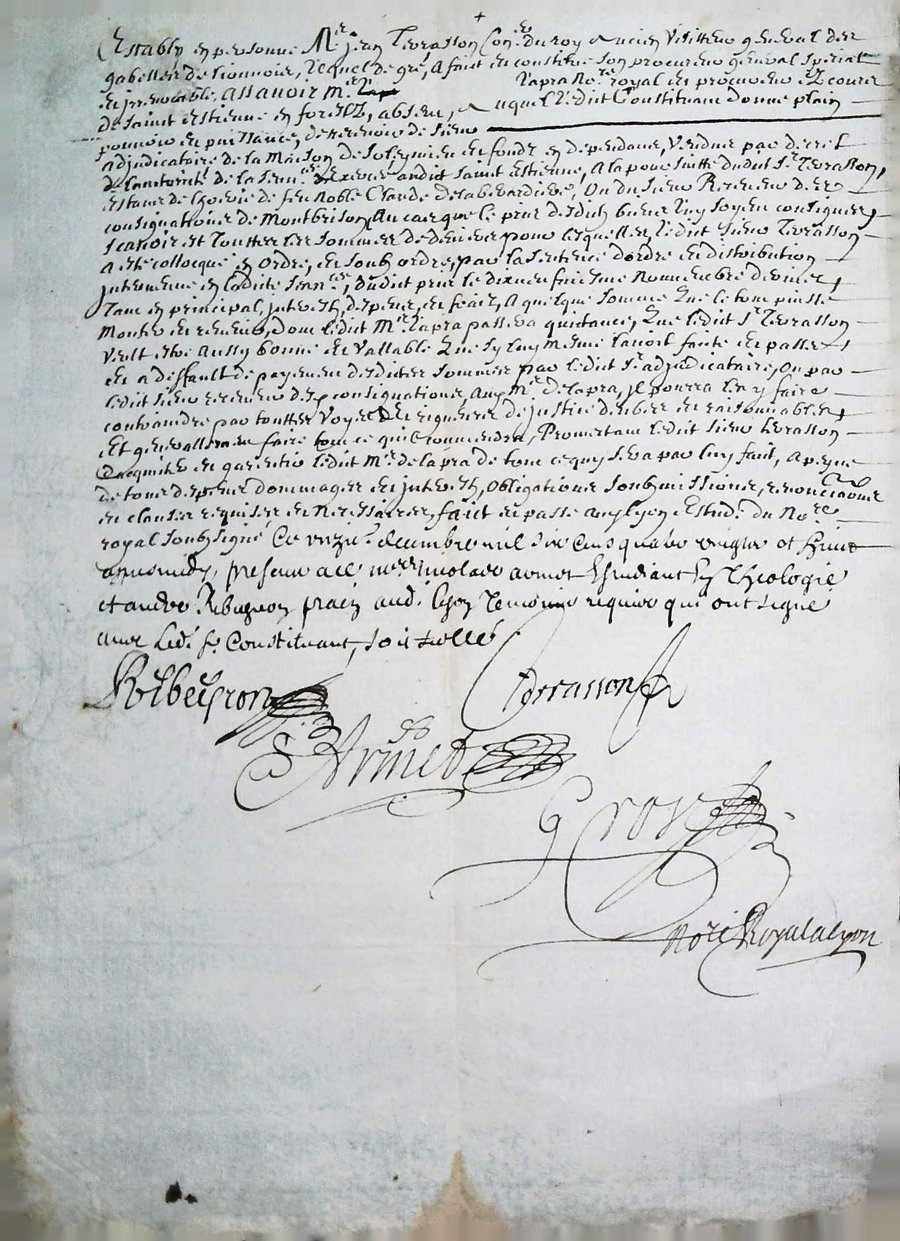 Estably en personne Mre jean Terrasson Coner du roy Ancien Visitteur general des
gabelles de Lionnois, Lequel de gré, A faict et constitué son procureur general special
et irrevocable, Assavoir Mre Lapra Nore royal et procureur ez cours
de saint estienne en forestz, absent, Auquel ledit Constituant donne plain
pouvoir et puissance, de recevoir de sieur
adjudicataire de la Maison de soleymieu et fondz en dependans, Vendus par decret
de lauttorité de la audict saint Estienne, A la poursuitte dudit Sr Terrasson,
estans de hoirie de feu noble Claude delaberardiere, Ou du sieur Receveur des
consignations de Montbrison, Au cas que le prix desdits biens luy soyent consignes,
scavoir est Touttes les sommes de deniers pour lesquelles ledict sieur Terrasson
A esté collocqué en ordre, et soub ordre, par la sentence dordre et distribution
intervenue en ladite , du dict prix le dixneufviesme Novembre dernier,
Tant en principal, interestz, despens, et fraiz, A quelque somme que le tout puisse
Monter et revenir, dont ledit Mre Lapra passera quictance, que ledit Sr Terrasson
veult estre Aussy bonne et vallable que sy luy mesme lavoit faite et passée,
et a deffault de payement desdites sommes par ledit Sr adjudicataire, Ou par
ledit sieur receveur des consignations, Audit Mre delapra, jl pourra les y faire
contraindre par touttes voyes et rigueurs de justice deubes et raisonnables,
Et generallement faire tout ce quil conviendra, Promettant ledit sieur terrasson
dacquitter et garentir ledit Mre delapra de tout ce quy sera par luy fait, A peyne
de tous despens dommages et interestz, obligations soubmissions, renonciations
et clauses requises et necessaires, faict et passé audit lyon Estude du Nore
royal soubsigné Ce decembre mil six cens quatre vingtz et huict
apresmidy, presens a ce Mre nicolas armet Estudiant en Theologie
et andre Ribeyron praen audt lyon Temoins requis qui ont signé
avec Ledt sr Constituant, soit scellé
Ribeyron
Terrasson
Armet
Groz
Nore Royal a lyon